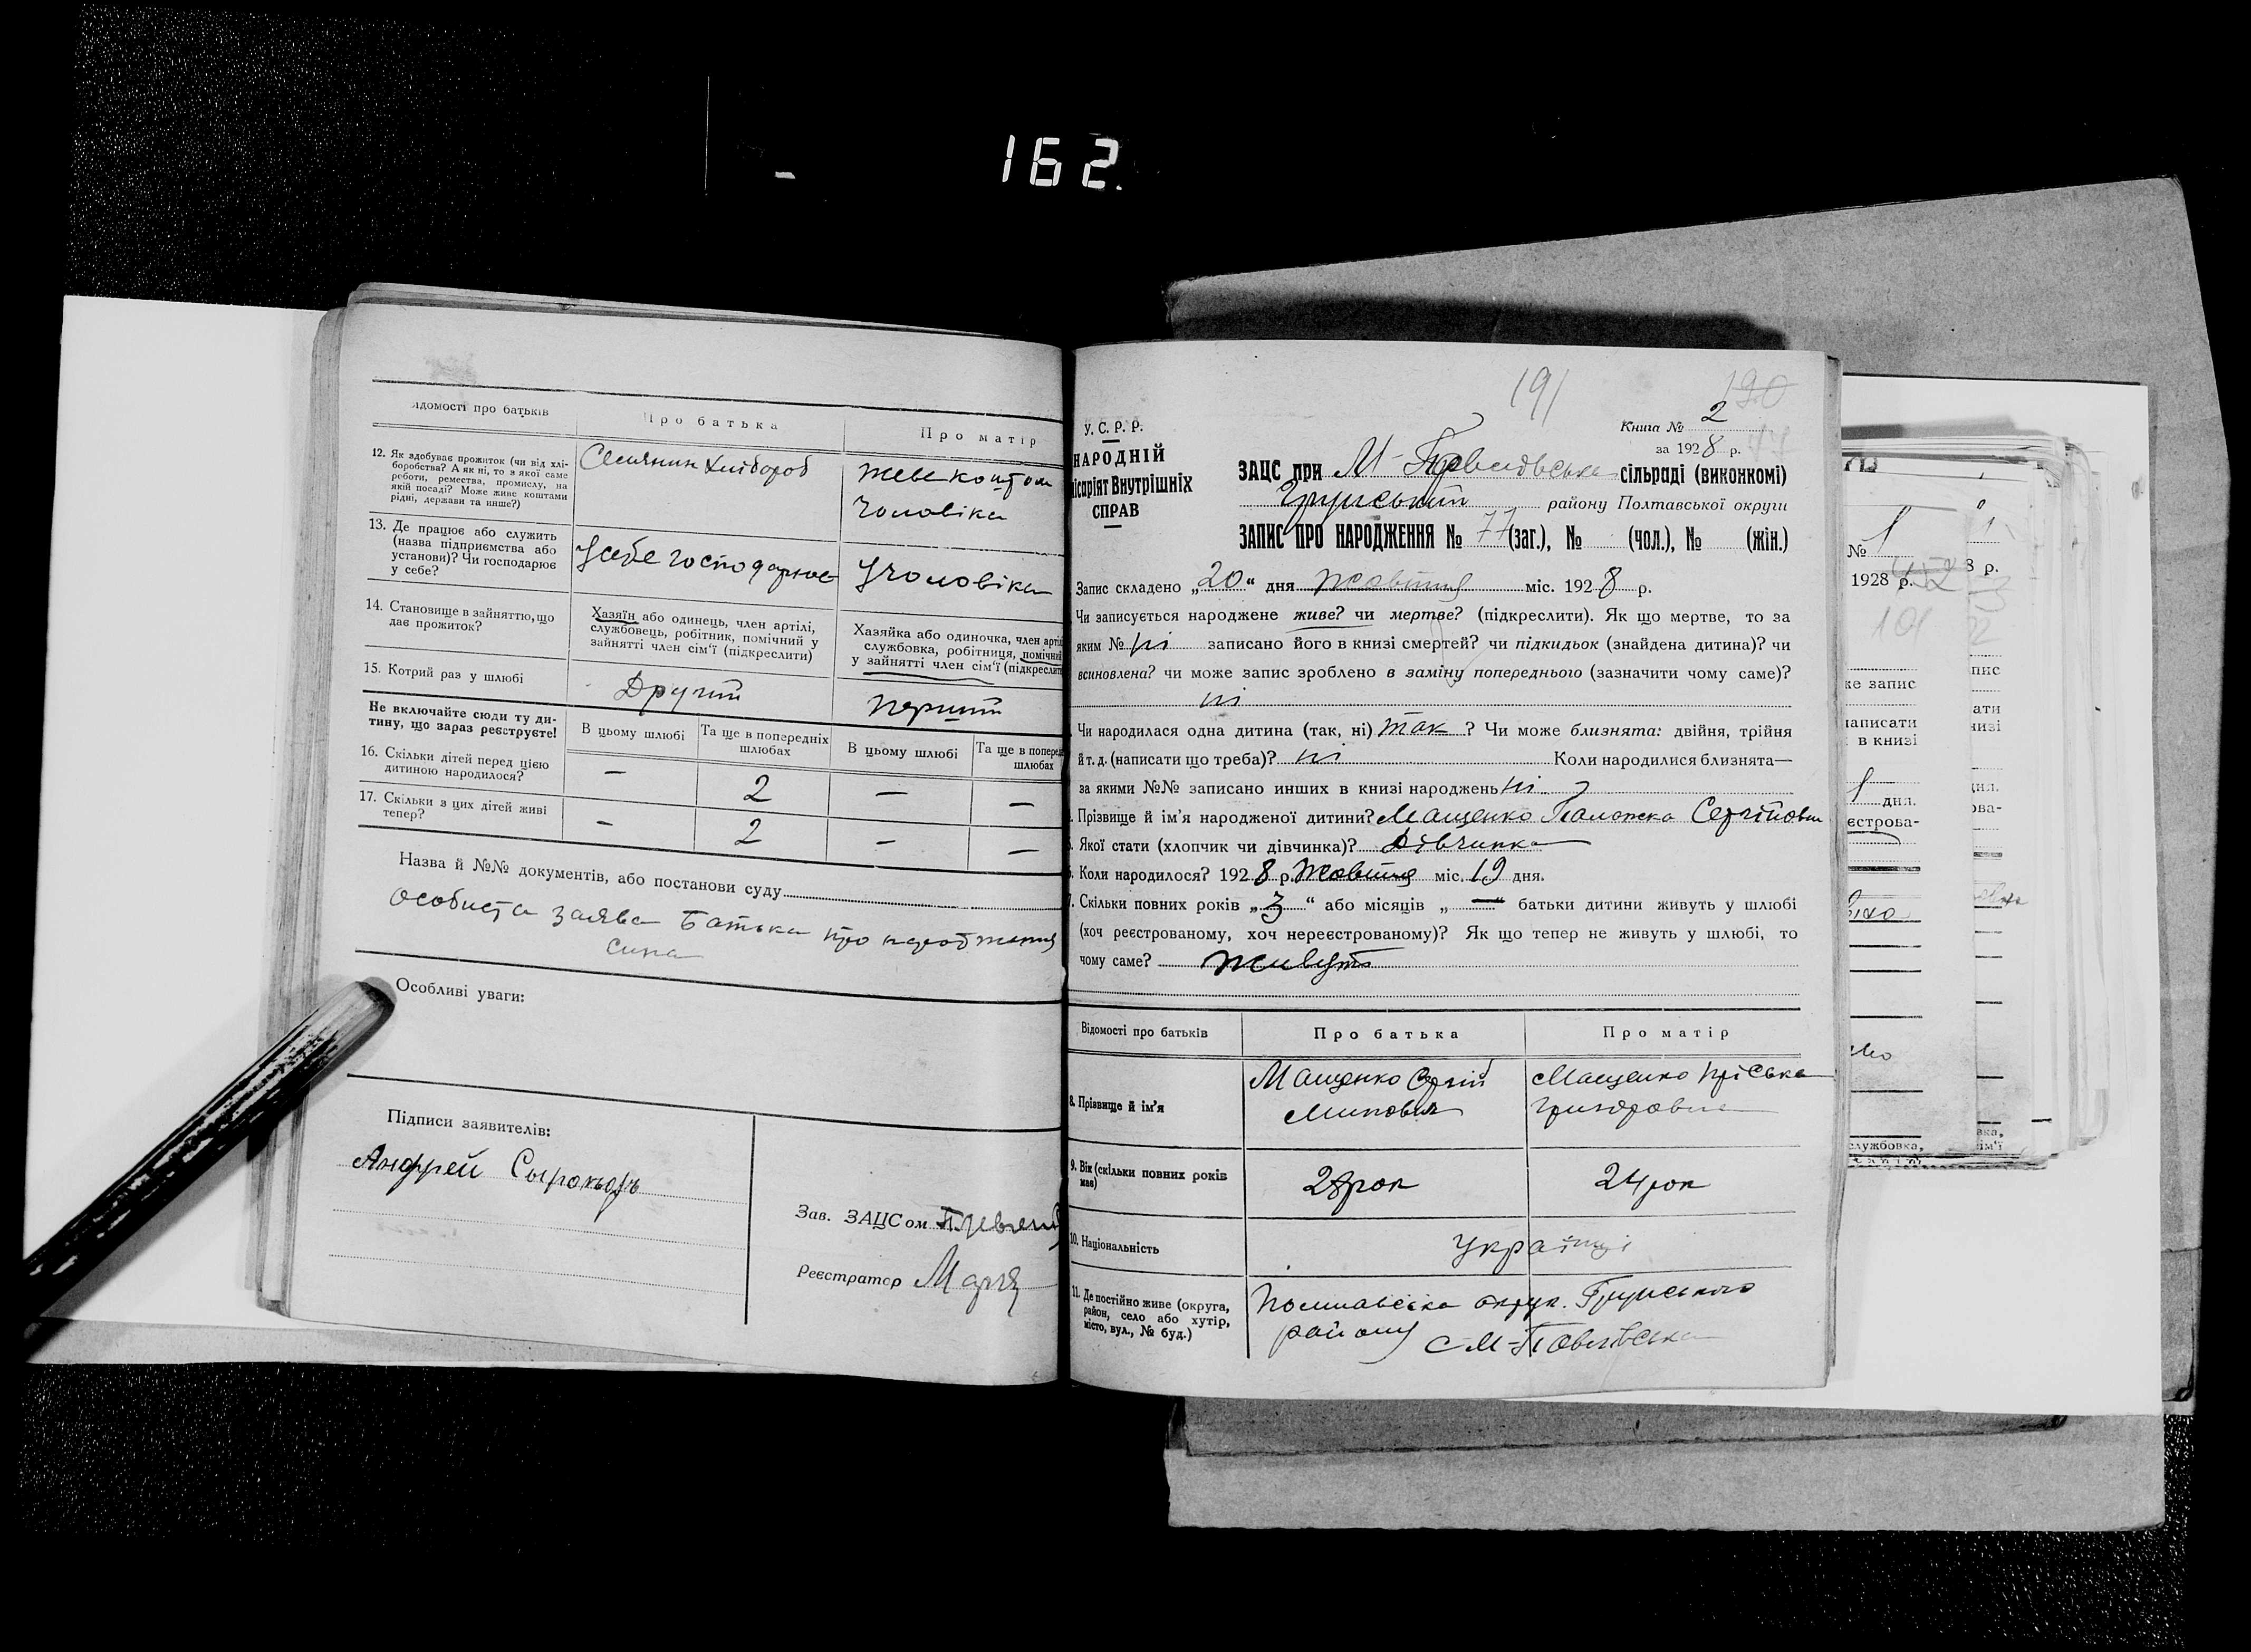 162.
Відомості про батьків
Про батька
Про матір
12. Як здобуває прожиток (чи від хлі-
боробства? А як ні, то з якої саме
роботи, ремества, промислу, на
якій посаді? Може живе коштами
рідні, держави та инше?)
Селянин Хлібороб
живе коштом
Чоловіка
13. Де працює або служить
(назва підприємства або
установи)? Чи господарює
у себе?
У себе господарює
У чоловіка
14. Становище в зайняттю, що
дає прожиток?
Хазяїн або одинець, член артілі,
службовець, робітник, помічний у
зайнятті член сім'ї (підкреслити)
Хазяйка або одиночка, член артіл
службовка, робітниця, помічний
у зайнятті член сім'ї (підкреслити
15. Котрий раз у шлюбі
Другий
перший
Не включайте сюди ту ди-
тину, що зараз реєструєте!
В цьому шлюбі
Та ще в попередніх
шлюбах
В цьому шлюбі
Та ще в поперед
шлюбах
16. Скільки дітей перед цією
дитиною народилося?
— 2 — —
17. Скільки з цих дітей живі
тепер?
— 2 — —
Назва й №№ документів, або постанови суду
особиста заява Батька про народження
сина
Особливі уваги:
Підписи заявителів:
Андрей
Зав. ЗАЦСом
Реєстратор
191
190
У.С.Р.Р.
НАРОДНІЙ
ісаріят Внутрішніх
СПРАВ
Книга № 2
за 1928 р.
ЗАЦС при М- сільраді (виконкомі)
району Полтавської округи
ЗАПИС ПРО НАРОДЖЕННЯ № 77 (заг.), № (чол.), № (жін.)
Запис складено „20“ дня Жовтня міс. 1928 р.
Чи записується народжене живе? чи мертве? (підкреслити). Як що мертве, то за
яким № ні записано його в книзі смертей? чи підкидьок (знайдена дитина)? чи
всиновлена? чи може запис зроблено в заміну попереднього (зазначити чому саме)?
ні
Чи народилася одна дитина (так, ні) так ? Чи може близнята: двійня, трійня
й т. д. (написати що треба)? ні Коли народилися близнята—
за якими №№ записано инших в книзі народжень ні
Прізвище й ім'я народженої дитини? Мащенко Палажка Сергійовна
Якої стати (хлопчик чи дівчинка)? Дівчинка
Коли народилося? 1928 р. Жовтня міс. 19 дня.
Скільки повних років „3“ або місяців „—“ батьки дитини живуть у шлюбі
(хоч реєстрованому, хоч нереєстрованому)? Як що тепер не живуть у шлюбі, то
чому саме? живуть
Відомості про батьків
Про батька
Про матір
8. Прізвище й ім'я
Мащенко Сергій
Минович
Мащенко Пріська
9. Вік (скільки повних років
має)
28 рок
24 рок
10. Національність
Українці
11. Де постійно живе (округа,
район, село або хутір,
місто, вул., № буд.)
Полтавська округ. Грунського
району
№ 1
1928 р.
8 р.
101
пис
же запис
написати
в книзі
дня.
естрова-
службовка,